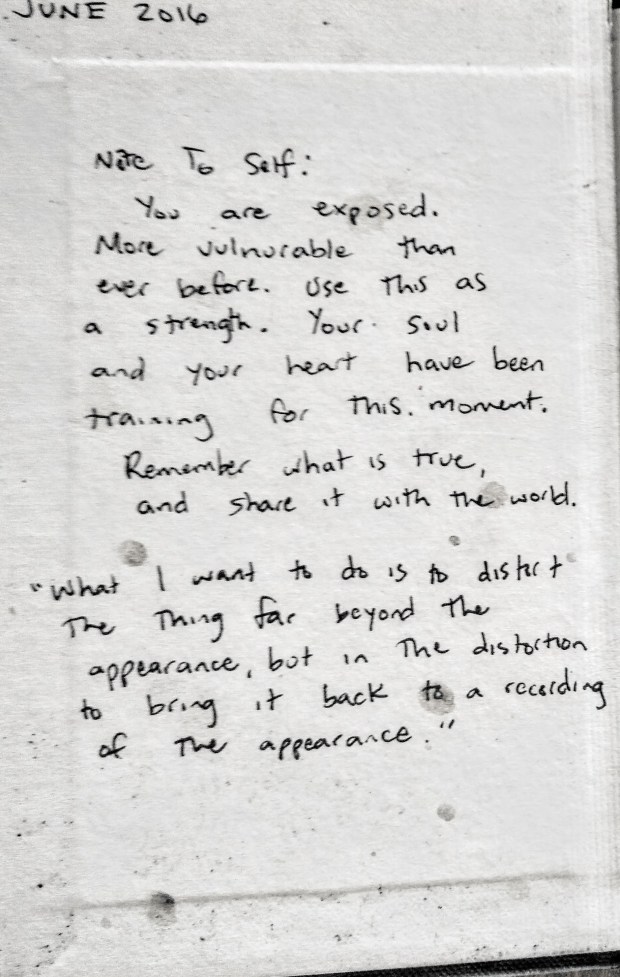 JUNE 2016
Note To Self:
You are exposed.
More vulnurable than
ever before. Use This as
a strength. Your soul
and your heart have been
training for This. moment.
Remember what is true,
and share it with the world.
"What I want to do is to distort
The Thing far beyond the
appearance, but in The distortion
to bring it back to a recording
of The appearance."